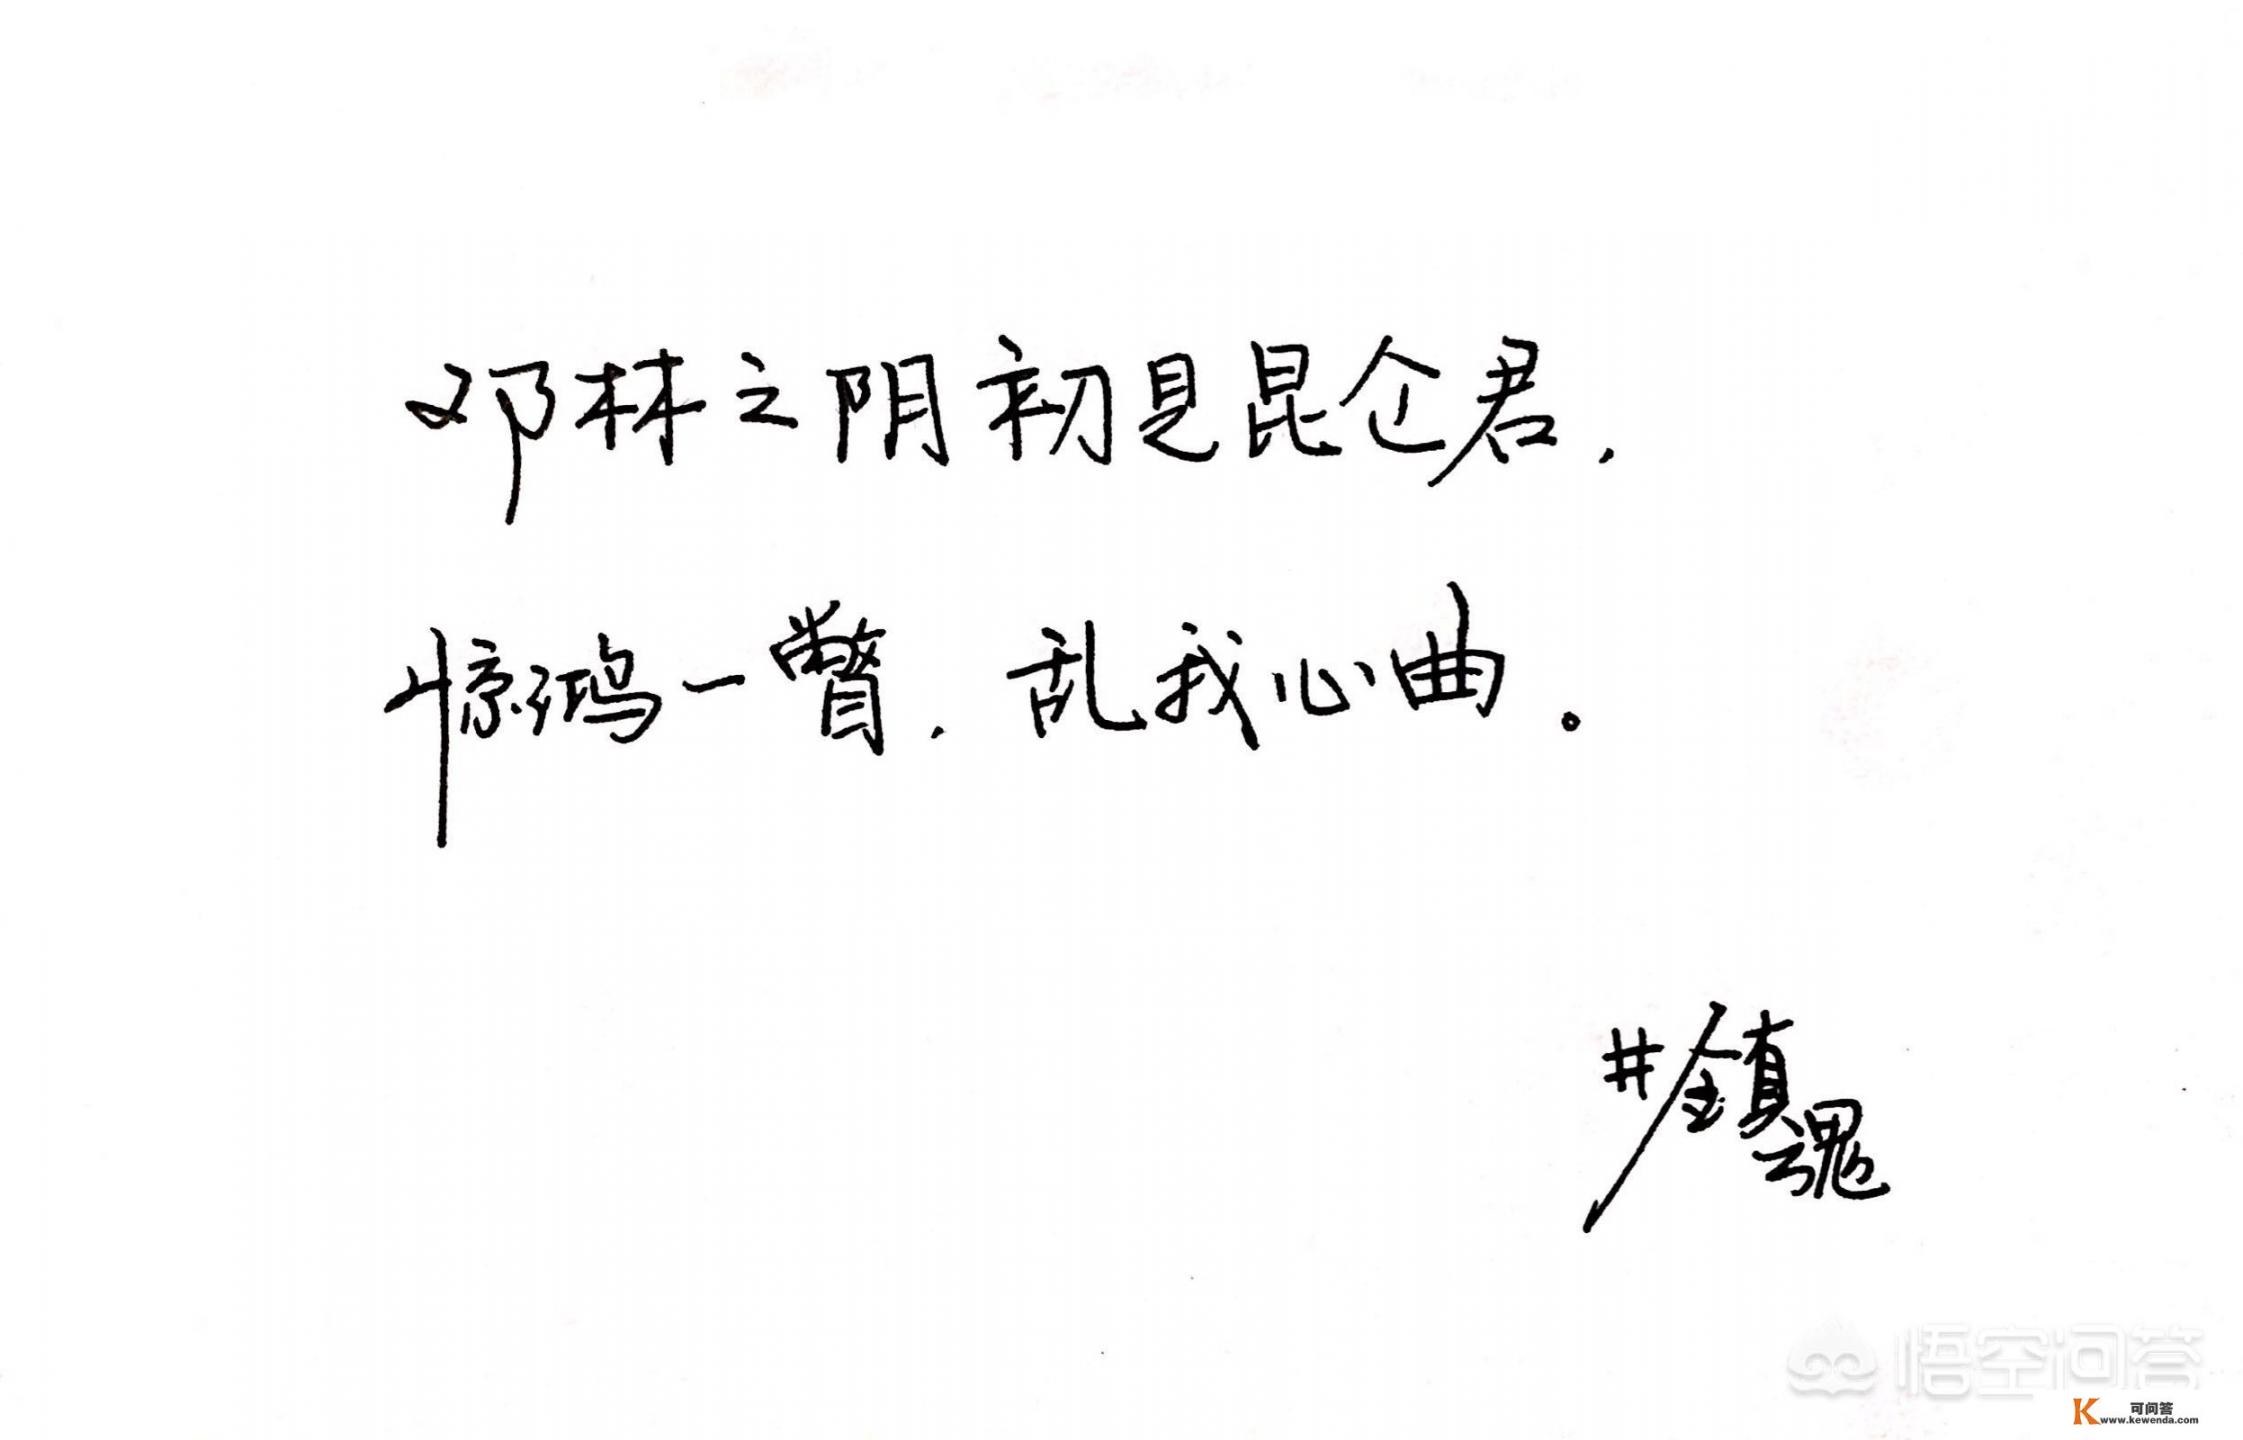 邓林之阴初是昆仑君,
惊鸿一瞥,乱我心曲。
#鎮魂
悟空问答
K 可问答
www.kewenda.com